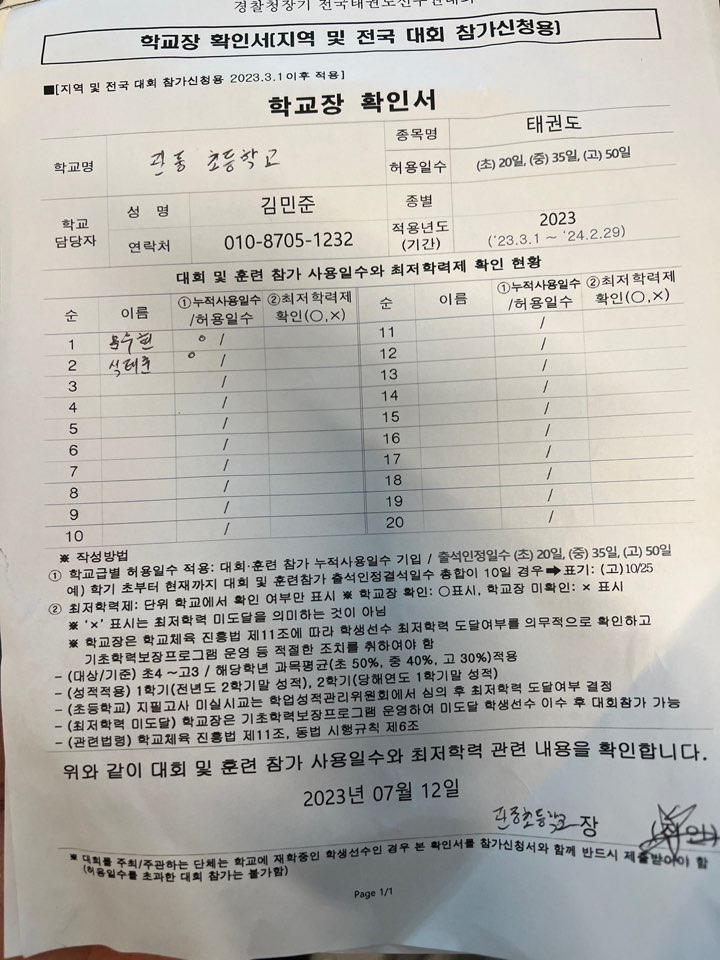 경찰청장기 전국태권도선수권대회
학교장 확인서(지역 및 전국 대회 참가신청용)
■[지역 및 전국 대회 참가신청용 2023.3.1이후 적용]
학교장 확인서
학교명 관동 초등학교 종목명 태권도
허용일수 (초) 20일, (중) 35일, (고) 50일
학교 담당자 성 명 김민준 종별
연락처 010-8705-1232 적용년도 (기간) 2023 ('23.3.1 ~ '24.2.29)
대회 및 훈련 참가 사용일수와 최저학력제 확인 현황
순 이름 ①누적사용일수 /허용일수 ②최저학력제 확인(○,×) 순 이름 ①누적사용일수 /허용일수 ②최저학력제 확인(○,×)
1 수현 0 / 11 /
2 석태준 0 / 12 /
3 / 13 /
4 / 14 /
5 / 15 /
6 / 16 /
7 / 17 /
8 / 18 /
9 / 19 /
10 / 20 /
※ 작성방법
① 학교급별 허용일수 적용: 대회·훈련 참가 누적사용일수 기입 / 출석인정일수 (초) 20일, (중) 35일, (고) 50일
예) 학기 초부터 현재까지 대회 및 훈련참가 출석인정결석일수 총합이 10일 경우➡표기: (고)10/25
② 최저학력제: 단위 학교에서 확인 여부만 표시 ※ 학교장 확인: ○표시, 학교장 미확인: × 표시
※ '×' 표시는 최저학력 미도달을 의미하는 것이 아님
※ 학교장은 학교체육 진흥법 제11조에 따라 학생선수 최저학력 도달여부를 의무적으로 확인하고
기초학력보장프로그램 운영 등 적절한 조치를 취하여야 함
- (대상/기준) 초4 ~고3 / 해당학년 과목평균(초 50%, 중 40%, 고 30%)적용
- (성적적용) 1학기(전년도 2학기말 성적), 2학기(당해연도 1학기말 성적)
- (초등학교) 지필고사 미실시교는 학업성적관리위원회에서 심의 후 최저학력 도달여부 결정
- (최저학력 미도달) 학교장은 기초학력보장프로그램 운영하여 미도달 학생선수 이수 후 대회참가 가능
- (관련법령) 학교체육 진흥법 제11조, 동법 시행규칙 제6조
위와 같이 대회 및 훈련 참가 사용일수와 최저학력 관련 내용을 확인합니다.
2023년 07월 12일
관동초등학교 장 (직인)
※ 대회를 주최/주관하는 단체는 학교에 재학중인 학생선수인 경우 본 확인서를 참가신청서와 함께 반드시 제출받아야 함
(허용일수를 초과한 대회 참가는 불가함)
Page 1/1